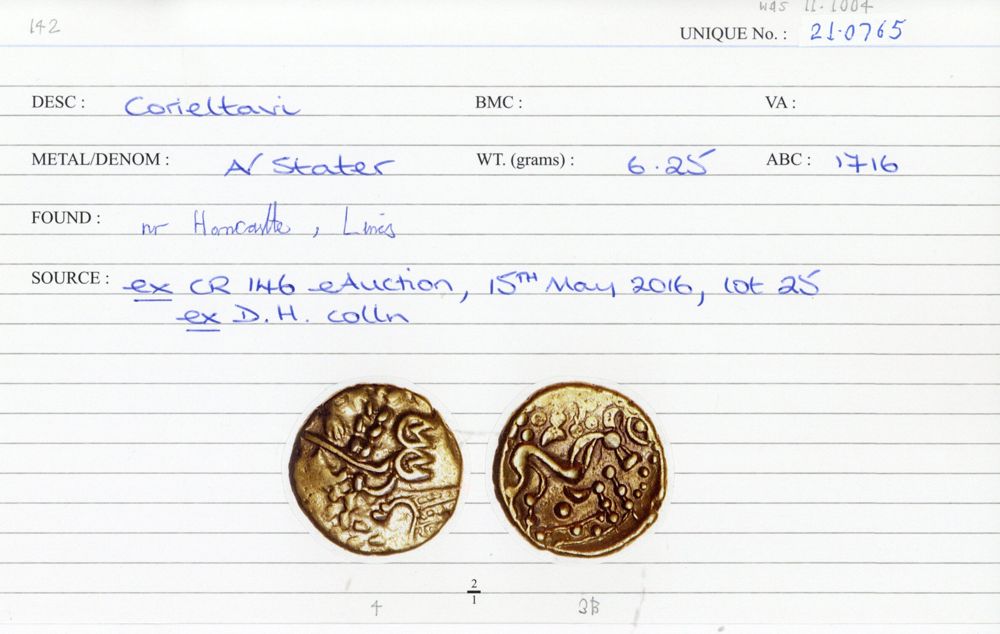 142
was 11.1004
UNIQUE No. : 21.0765
DESC : Corieltavi BMC : VA :
METAL/DENOM : A/ Stater WT. (grams) : 6.25 ABC : 1716
FOUND : nr Horncastle, Lincs
SOURCE : ex CR 146 eAuction, 15TH May 2016, lot 25
ex D.H. colln
2
1
4 3B